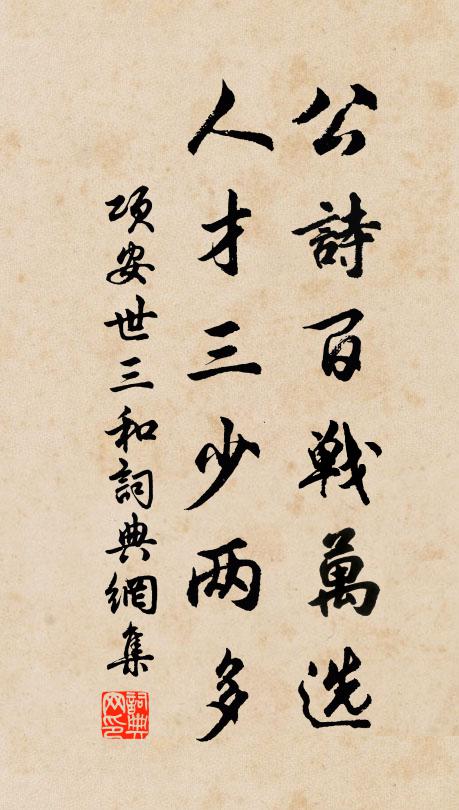 公詩百戦萬选
人才三少两多
项安世三和詞典網集
詞典网印